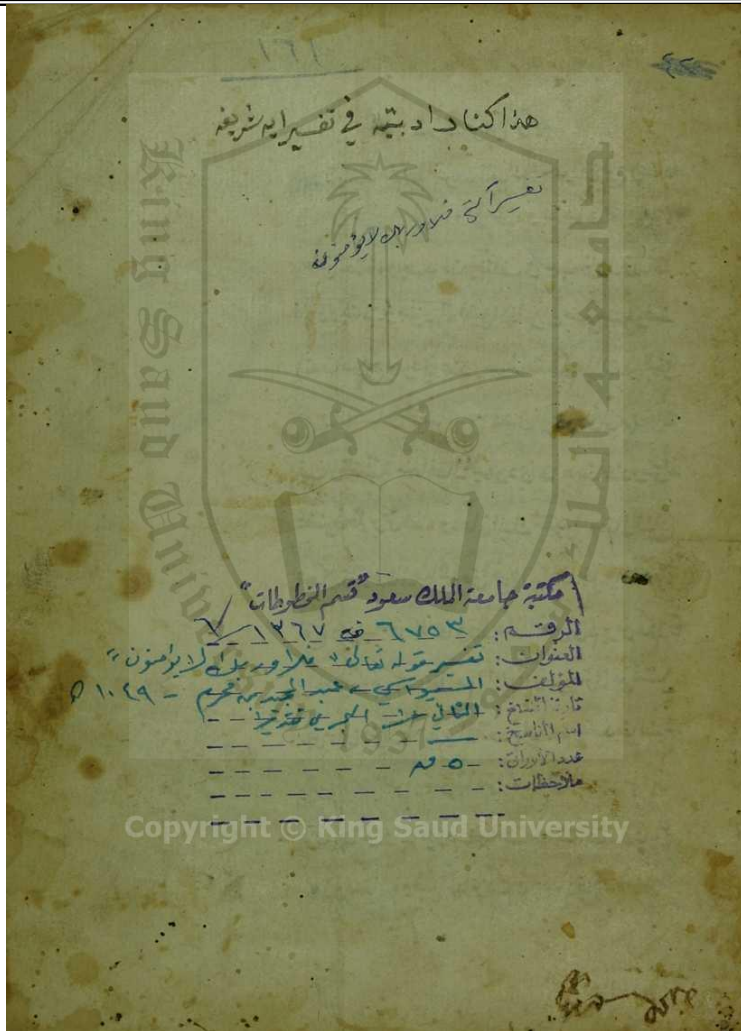 ١٦٦
هذا كتاب اد بتيه في تفسير ايه شريفه
تفسير آية فلا وربك لا يؤمنون
مكتبة جامعة الملك سعود "قسم المخطوطات"
الرقم: ٦٧٥٣ ف ١٣٦٧/٦
العنوان: تفسير قوله تعالى "فلا وربك لا يؤمنون"
المؤلف: السيواسي، عبد المجيد بن محرم - ١٠٤٩ هـ
تاريخ النسخ: الثاني عشر الهجري تقديرا
اسم الناسخ:
عدد الأوراق: ٥ ق
ملاحظات:
King Saud University
1957
Copyright © King Saud University